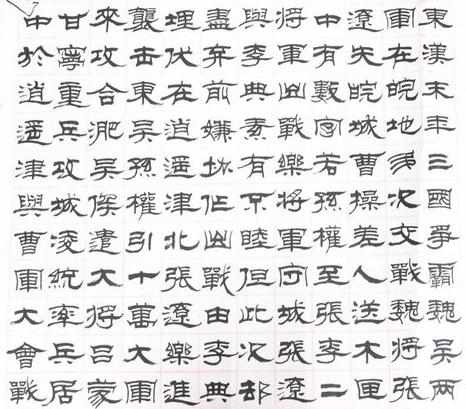 東漢末年三國爭霸魏吴两
軍在皖地多次交戰魏將張
遼失皖城曹操差人送木匣
中有數字若孫權至張李二
將軍出戰樂將軍守城張遼
與李典素有不睦但此次却
盡弃前嫌协作出戰由李典
埋伏在逍遥津北張遼樂進
襲击東吴孫權引十萬大軍
來攻合淝吴侯遣大將吕蒙
甘寧重兵攻城凌統率兵居
中於逍遥津與曹軍大會戰